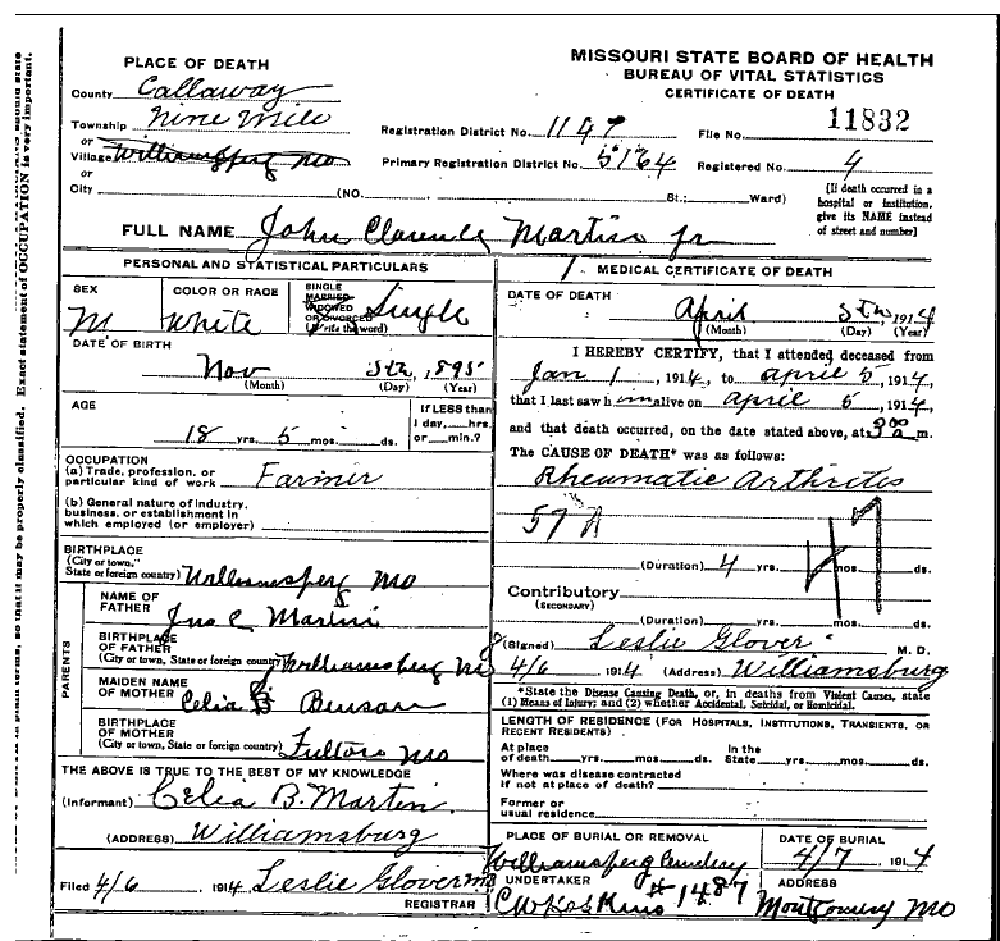 MISSOURI STATE BOARD OF HEALTH
BUREAU OF VITAL STATISTICS
CERTIFICATE OF DEATH
PLACE OF DEATH
County Callaway
Township Nine Mile
or
Village Williamsperg Mo
or
City (NO. St.; Ward)
Registration District No. 1147 File No. 11832
Primary Registration District No. 5164 Registered No. 4
(If death occurred in a
hospital or institution,
give its NAME instead
of street and number)
FULL NAME John Clarence Martin Jr
PERSONAL AND STATISTICAL PARTICULARS
SEX M
COLOR OR RACE White
SINGLE
MARRIED
WIDOWED
OR DIVORCED
(Write the word) Single
DATE OF BIRTH
Nov 5th, 1895
(Month) (Day) (Year)
AGE
18 yrs. 5 mos. ds.
If LESS than
1 day, hrs.
or min.?
OCCUPATION
(a) Trade, profession, or
particular kind of work Farmir
(b) General nature of industry,
business, or establishment in
which employed (or employer)
BIRTHPLACE
(City or town,
State or foreign country) Williamsperg Mo
PARENTS
NAME OF
FATHER Jno C Martin
BIRTHPLACE
OF FATHER
(City or town, State or foreign country) Williamsberg Mo
MAIDEN NAME
OF MOTHER Celia B Benson
BIRTHPLACE
OF MOTHER
(City or town, State or foreign country) Fulton Mo
THE ABOVE IS TRUE TO THE BEST OF MY KNOWLEDGE
(Informant) Celia B. Martin
(ADDRESS) Williamsburg
Filed 4/6 1914 Leslie Glover MD
REGISTRAR
MEDICAL CERTIFICATE OF DEATH
DATE OF DEATH
April 5th, 1914
(Month) (Day) (Year)
I HEREBY CERTIFY, that I attended deceased from
Jan 1, 1914, to April 5, 1914,
that I last saw him alive on April 5, 1914,
and that death occurred, on the date stated above, at 3 00 a m.
The CAUSE OF DEATH* was as follows:
Rheumatic Arthritis
57 A
(Duration) 4 yrs. mos. ds.
Contributory
(SECONDARY)
(Duration) yrs. mos. ds.
(Signed) Leslie Glover M. D.
4/6 1914 (Address) Williamsburg
*State the Disease Causing Death, or, in deaths from Violent Causes, state
(1) Means of Injury; and (2) whether Accidental, Suicidal, or Homicidal.
LENGTH OF RESIDENCE (FOR HOSPITALS, INSTITUTIONS, TRANSIENTS, OR
RECENT RESIDENTS)
At place In the
of death yrs. mos. ds. State yrs. mos. ds.
Where was disease contracted
if not at place of death?
Former or
usual residence
PLACE OF BURIAL OR REMOVAL
Williamsperg Cemetery
DATE OF BURIAL
4/7 1914
UNDERTAKER
#1487
ADDRESS
Montgomery Mo
so that it may be properly classified. Exact statement of OCCUPATION is very important.